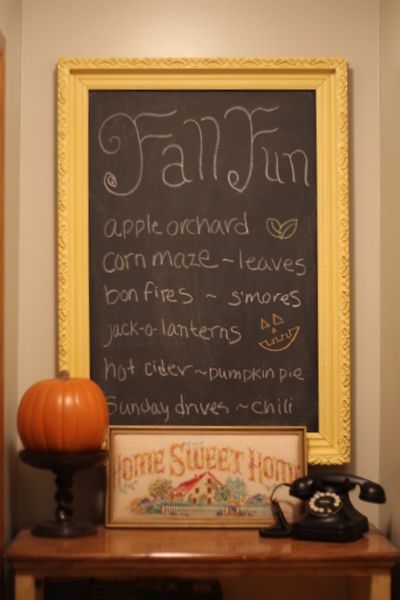 Fall Fun
apple orchard
corn maze ~ leaves
bonfires ~ s'mores
jack-o-lanterns
hot cider ~ pumpkin pie
Sunday drives ~ chili
HOME SWEET HOME